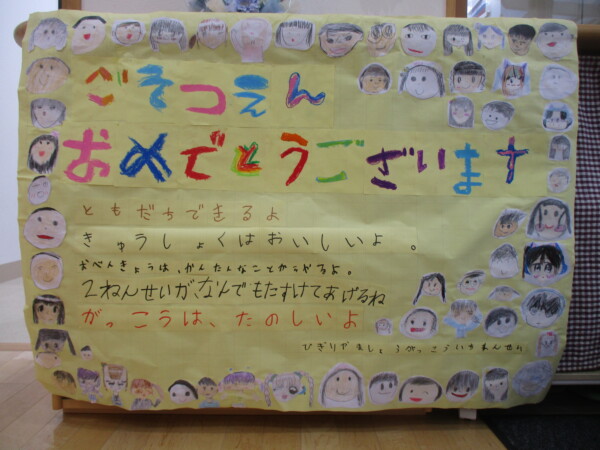 ごそつえん
おめでとうございます
ともだちできるよ
きゅうしょくはおいしいよ。
おべんきょうは、かんたんなことからやるよ。
2ねんせいがなんでもたすけてあげるね
がっこうは、たのしいよ
ひぎりやましょうがっこういちねんせい